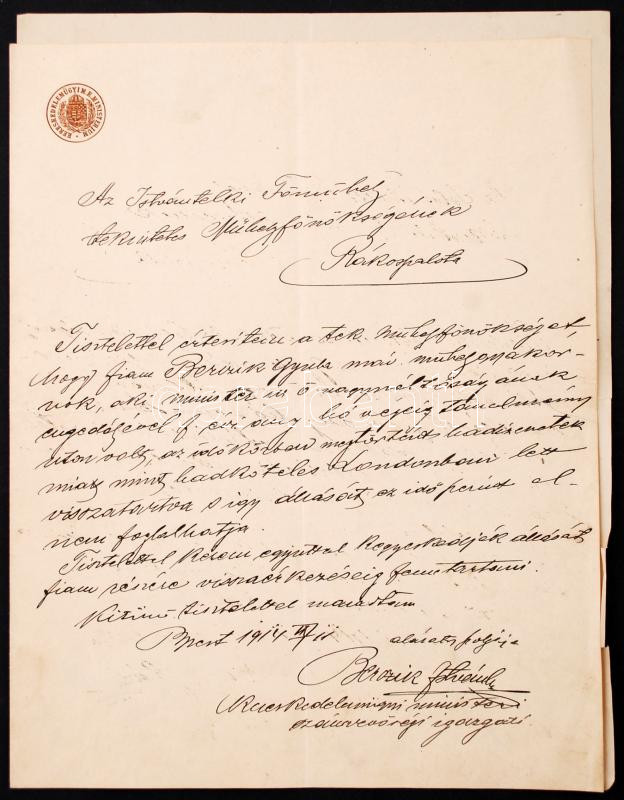 KERESKEDELEMÜGYI M. K. MINISTERIUM
Az Istvántelki Főműhely
tekintetes Műhelyfőnökségének
Rákospalota
Tisztelettel értesítem a tek. műhelyfőnökséget,
hogy fiam Berzik Gyula máv. műhelygyakor-
nok, aki minister úr ő nagyméltóságának
engedélyével f. évi aug. hó végéig tanulmány
úton volt, az időközben megtörtént hadizenetek
miatt mint hadköteles Londonban lett
visszatartva s így állását ez idő szerint el-
nem foglalhatja.
Tisztelettel kérem egyúttal kegyeskedjék állását
fiam részére visszaérkezéséig fenntartani.
Kitünő tisztelettel maradtam
Bpest 1914 11
alázatos szolgája
Berzik István
Kereskedelemügyi ministeri
számvevőségi igazgató.